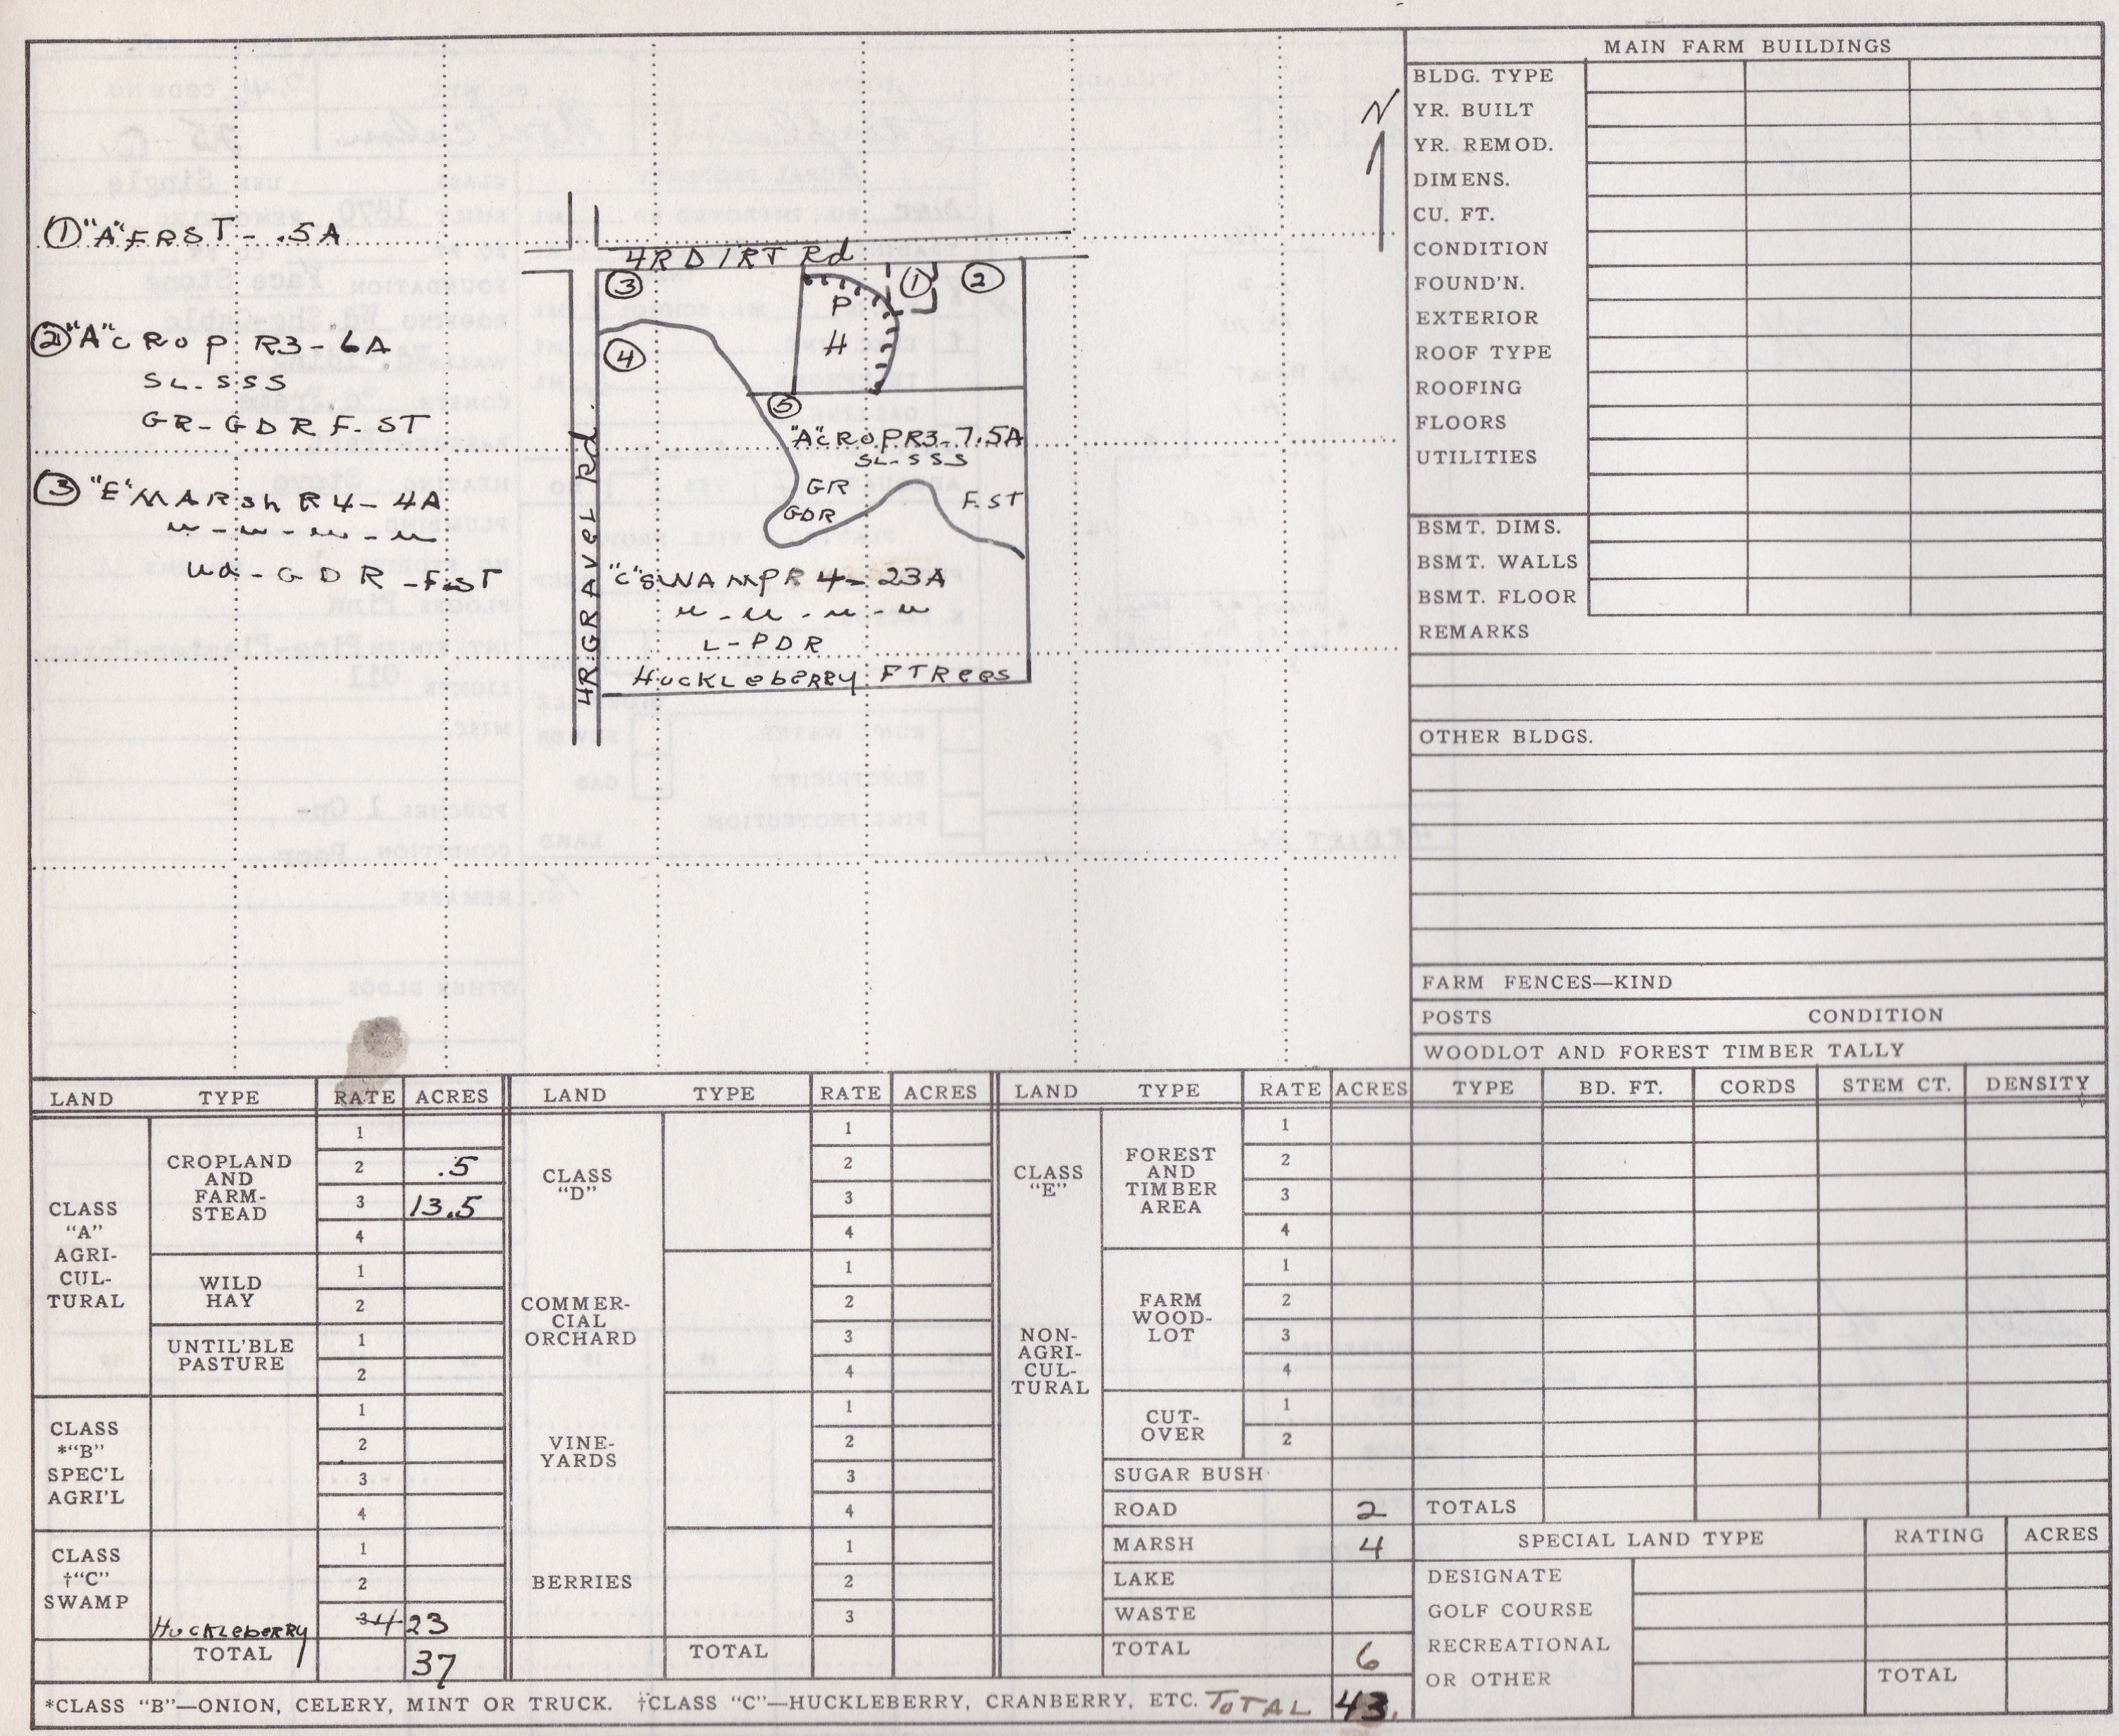 N
① "A" FRST - .5A
② "A" CROP R3 - 6A
SL - SSS
GR - GDR F. ST
③ "E" MARSh R4 - 4A
GDR - F. ST
4R DIRT Rd
③
P
H
①
②
④
⑤
"A" CROP R3 - 7.5A
SL - SSS
GR
GDR
F. ST
4R GRAVEL Rd.
"C" SWAMP R4 - 23A
L - PDR
HUCKLebeRRy F TRees
MAIN FARM BUILDINGS
BLDG. TYPE
YR. BUILT
YR. REMOD.
DIMENS.
CU. FT.
CONDITION
FOUND'N.
EXTERIOR
ROOF TYPE
ROOFING
FLOORS
UTILITIES
BSMT. DIMS.
BSMT. WALLS
BSMT. FLOOR
REMARKS
OTHER BLDGS.
FARM FENCES—KIND
POSTS CONDITION
WOODLOT AND FOREST TIMBER TALLY
TYPE BD. FT. CORDS STEM CT. DENSITY
TOTALS
SPECIAL LAND TYPE RATING ACRES
DESIGNATE
GOLF COURSE
RECREATIONAL
OR OTHER
TOTAL
LAND TYPE RATE ACRES
CLASS
"A"
AGRI-
CUL-
TURAL
CROPLAND
AND
FARM-
STEAD
1
2 .5
3 13.5
4
WILD
HAY
1
2
UNTIL'BLE
PASTURE
1
2
CLASS
*"B"
SPEC'L
AGRI'L
1
2
3
4
CLASS
†"C"
SWAMP
1
2
HucKLebeRRy 3 4 23
TOTAL 37
LAND TYPE RATE ACRES
CLASS
"D"
COMMER-
CIAL
ORCHARD
1
2
3
4
1
2
3
4
VINE-
YARDS
1
2
3
4
BERRIES
1
2
3
TOTAL
LAND TYPE RATE ACRES
CLASS
"E"
NON-
AGRI-
CUL-
TURAL
FOREST
AND
TIMBER
AREA
1
2
3
4
FARM
WOOD-
LOT
1
2
3
4
CUT-
OVER
1
2
SUGAR BUSH
ROAD 2
MARSH 4
LAKE
WASTE
TOTAL 6
*CLASS "B"—ONION, CELERY, MINT OR TRUCK. †CLASS "C"—HUCKLEBERRY, CRANBERRY, ETC. TOTAL 43.